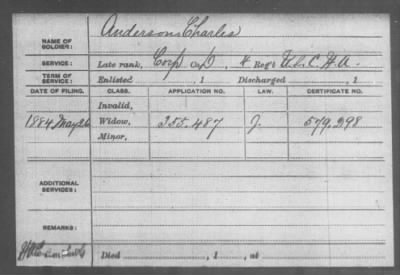 NAME OF SOLDIER: Anderson, Charles
SERVICE: Late rank, Corp Co. D, 4 Reg't U.S.C.H.A.
TERM OF SERVICE: Enlisted , 1 Discharged , 1
DATE OF FILING. CLASS. APPLICATION NO. LAW. CERTIFICATE NO.
Invalid,
1884 May 26 Widow, 355.487 J. 579.298
Minor,
ADDITIONAL SERVICES:
REMARKS:
Died , 1 , at